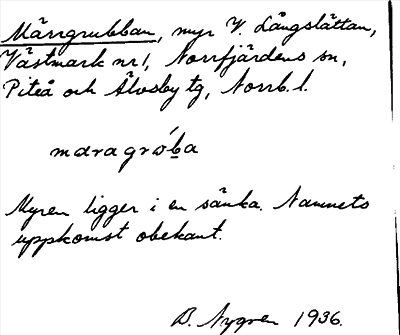 Märrgrubban, myr V. Långslättan,
Västmark nr 1, Norrfjärdens sn,
Piteå och Älvsby tg, Norrb. l.
maragróba
Myren ligger i en sänka. Namnets
uppkomst obekant.
B. Nygren 1936.